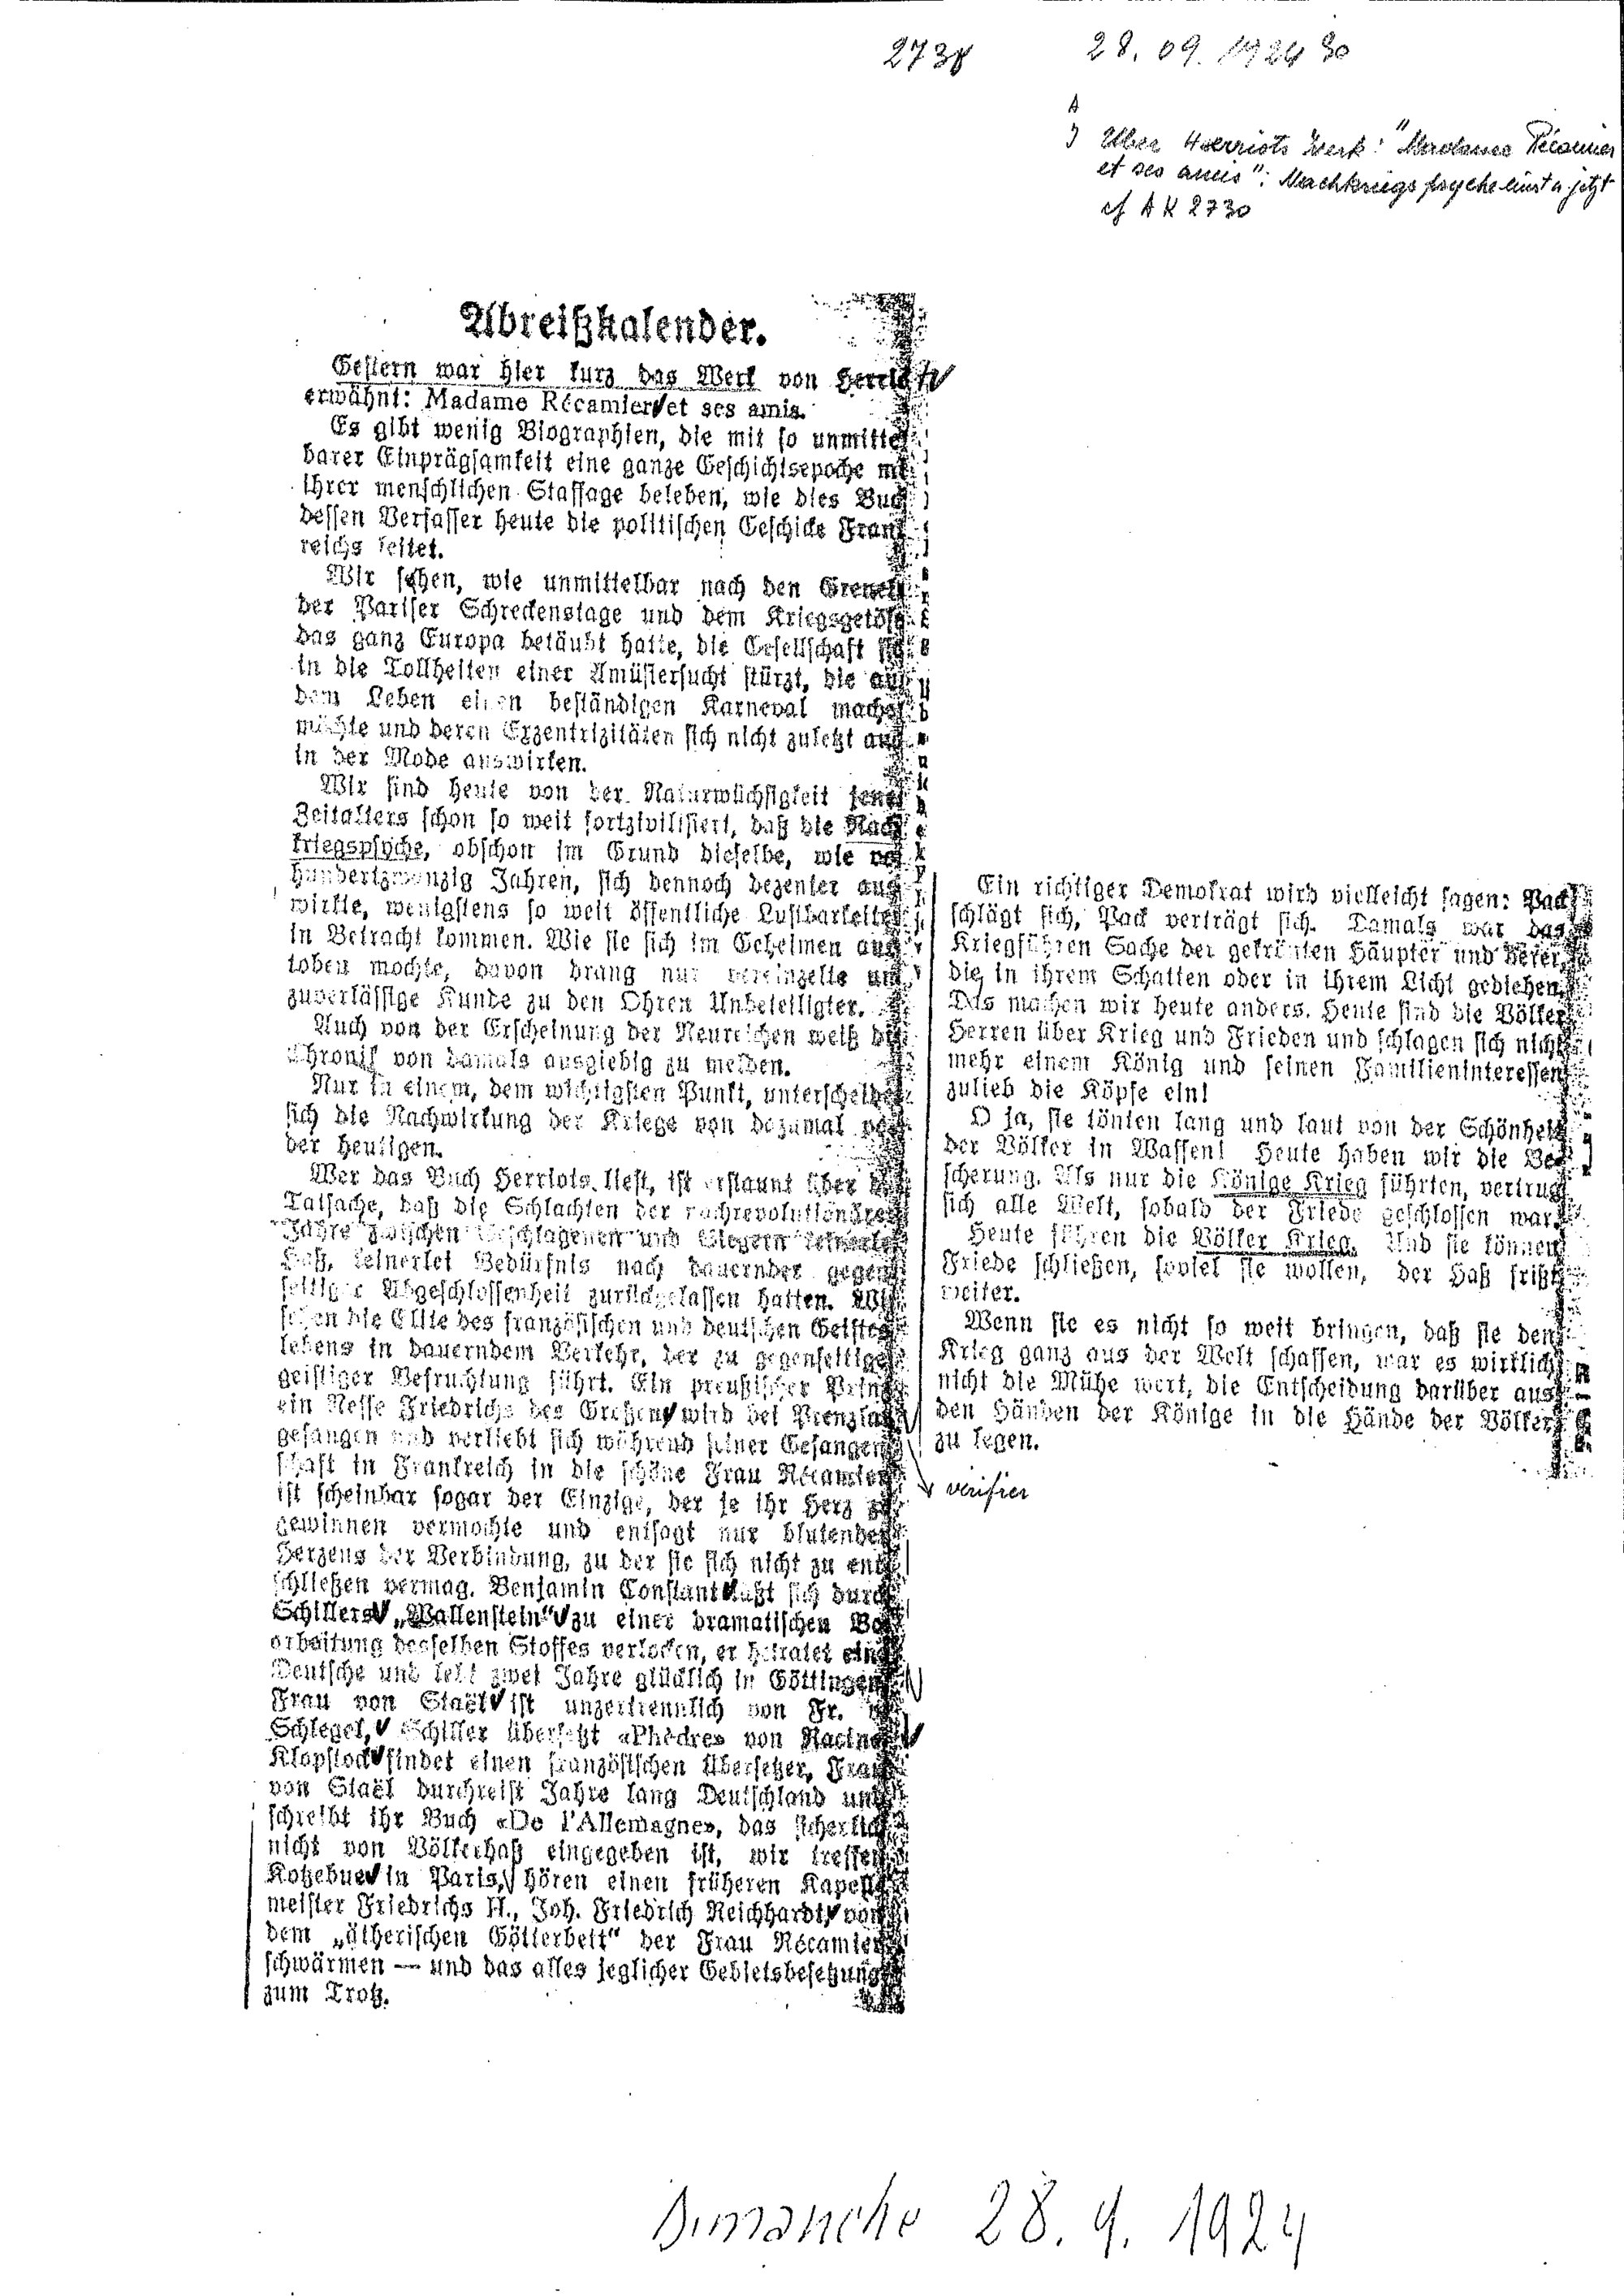 2738 28.09.1924 30
A
J Über Herriots Werk: "Madame Récamier
et ses amis": Nachkriegspsyche einst u. jetzt
cf AK 2730
Abreißkalender.
Gestern war hier kurz das Werk von Herriot
erwähnt: Madame Récamier et ses amis.
Es gibt wenig Biographien, die mit so unmittel
barer Einprägsamkeit eine ganze Geschichtsepoche mit
ihrer menschlichen Staffage beleben, wie dies Buch
dessen Verfasser heute die politischen Geschicke Frank
reichs leitet.
Wir sehen, wie unmittelbar nach den Greueln
der Pariser Schreckenstage und dem Kriegsgetöse
das ganz Europa betäubt hatte, die Gesellschaft sich
in die Tollheiten einer Amüsiersucht stürzt, die aus
dem Leben einen beständigen Karneval machen
möchte und deren Exzentrizitäten sich nicht zuletzt auch
in der Mode auswirken.
Wir sind heute von der Naturwüchsigkeit jenes
Zeitalters schon so weit fortzivilisiert, daß die Nach
kriegspsyche, obschon im Grund dieselbe, wie vor
hundertzwanzig Jahren, sich dennoch dezenter aus
wirkte, wenigstens so weit öffentliche Lustbarkeiten
in Betracht kommen. Wie sie sich im Geheimen aus
toben mochte, davon drang nur vereinzelte un
zuverlässige Kunde zu den Ohren Unbeteiligter.
Auch von der Erscheinung der Neureichen weiß die
Chronik von damals ausgiebig zu melden.
Nur in einem, dem wichtigsten Punkt, unterscheidet
sich die Nachwirkung der Kriege von dazumal von
der heutigen.
Wer das Buch Herriots liest, ist erstaunt über die
Tatsache, daß die Schlachten der nachrevolutionären
Jahre zwischen Geschlagenen und Siegern keinerlei
Haß, keinerlei Bedürfnis nach dauernder gegen
seitiger Abgeschlossenheit zurückgelassen hatten. Wir
sehen die Elite des französischen und deutschen Geistes
lebens in dauerndem Verkehr, der zu gegenseitiger
geistiger Befruchtung führt. Ein preußischer Prinz
ein Neffe Friedrichs des Großen, wird bei Prenzlau
gefangen und verliebt sich während seiner Gefangen
schaft in Frankreich in die schöne Frau Récamier
ist scheinbar sogar der Einzige, der je ihr Herz zu
gewinnen vermochte und entsagt nur blutenden
Herzens der Verbindung, zu der sie sich nicht zu ent
schließen vermag. Benjamin Constant läßt sich durch
Schillers „Wallenstein“ zu einer dramatischen Be
arbeitung desselben Stoffes verlocken, er heiratet eine
Deutsche und lebt zwei Jahre glücklich in Göttingen
Frau von Staël ist unzertrennlich von Fr. v.
Schlegel, Schiller übersetzt «Phèdre» von Racine
Klopstock findet einen französischen Übersetzer, Frau
von Staël durchreist Jahre lang Deutschland und
schreibt ihr Buch «De l'Allemagne», das sicherlich
nicht von Völkerhaß eingegeben ist, wir treffen
Kotzebue in Paris, hören einen früheren Kapell
meister Friedrichs II., Joh. Friedrich Reichhardt, von
dem „ätherischen Götterbett“ der Frau Récamier
schwärmen — und das alles jeglicher Gebietsbesetzung
zum Trotz.
Ein richtiger Demokrat wird vielleicht sagen: Pack
schlägt sich, Pack verträgt sich. Damals war das
Kriegführen Sache der gekrönten Häupter und derer,
die in ihrem Schatten oder in ihrem Licht gediehen.
Das machen wir heute anders. Heute sind die Völker
Herren über Krieg und Frieden und schlagen sich nicht
mehr einem König und seinen Familieninteressen
zulieb die Köpfe ein!
O ja, sie tönten lang und laut von der Schönheit
der Völker in Waffen! Heute haben wir die Be
scherung. Als nur die Könige Krieg führten, vertrug
sich alle Welt, sobald der Friede geschlossen war.
Heute führen die Völker Krieg. Und sie können
Friede schließen, soviel sie wollen, der Haß frißt
weiter.
Wenn sie es nicht so weit bringen, daß sie den
Krieg ganz aus der Welt schaffen, war es wirklich
nicht die Mühe wert, die Entscheidung darüber aus
den Händen der Könige in die Hände der Völker
zu legen.
verifier
Dimanche 28.9.1924